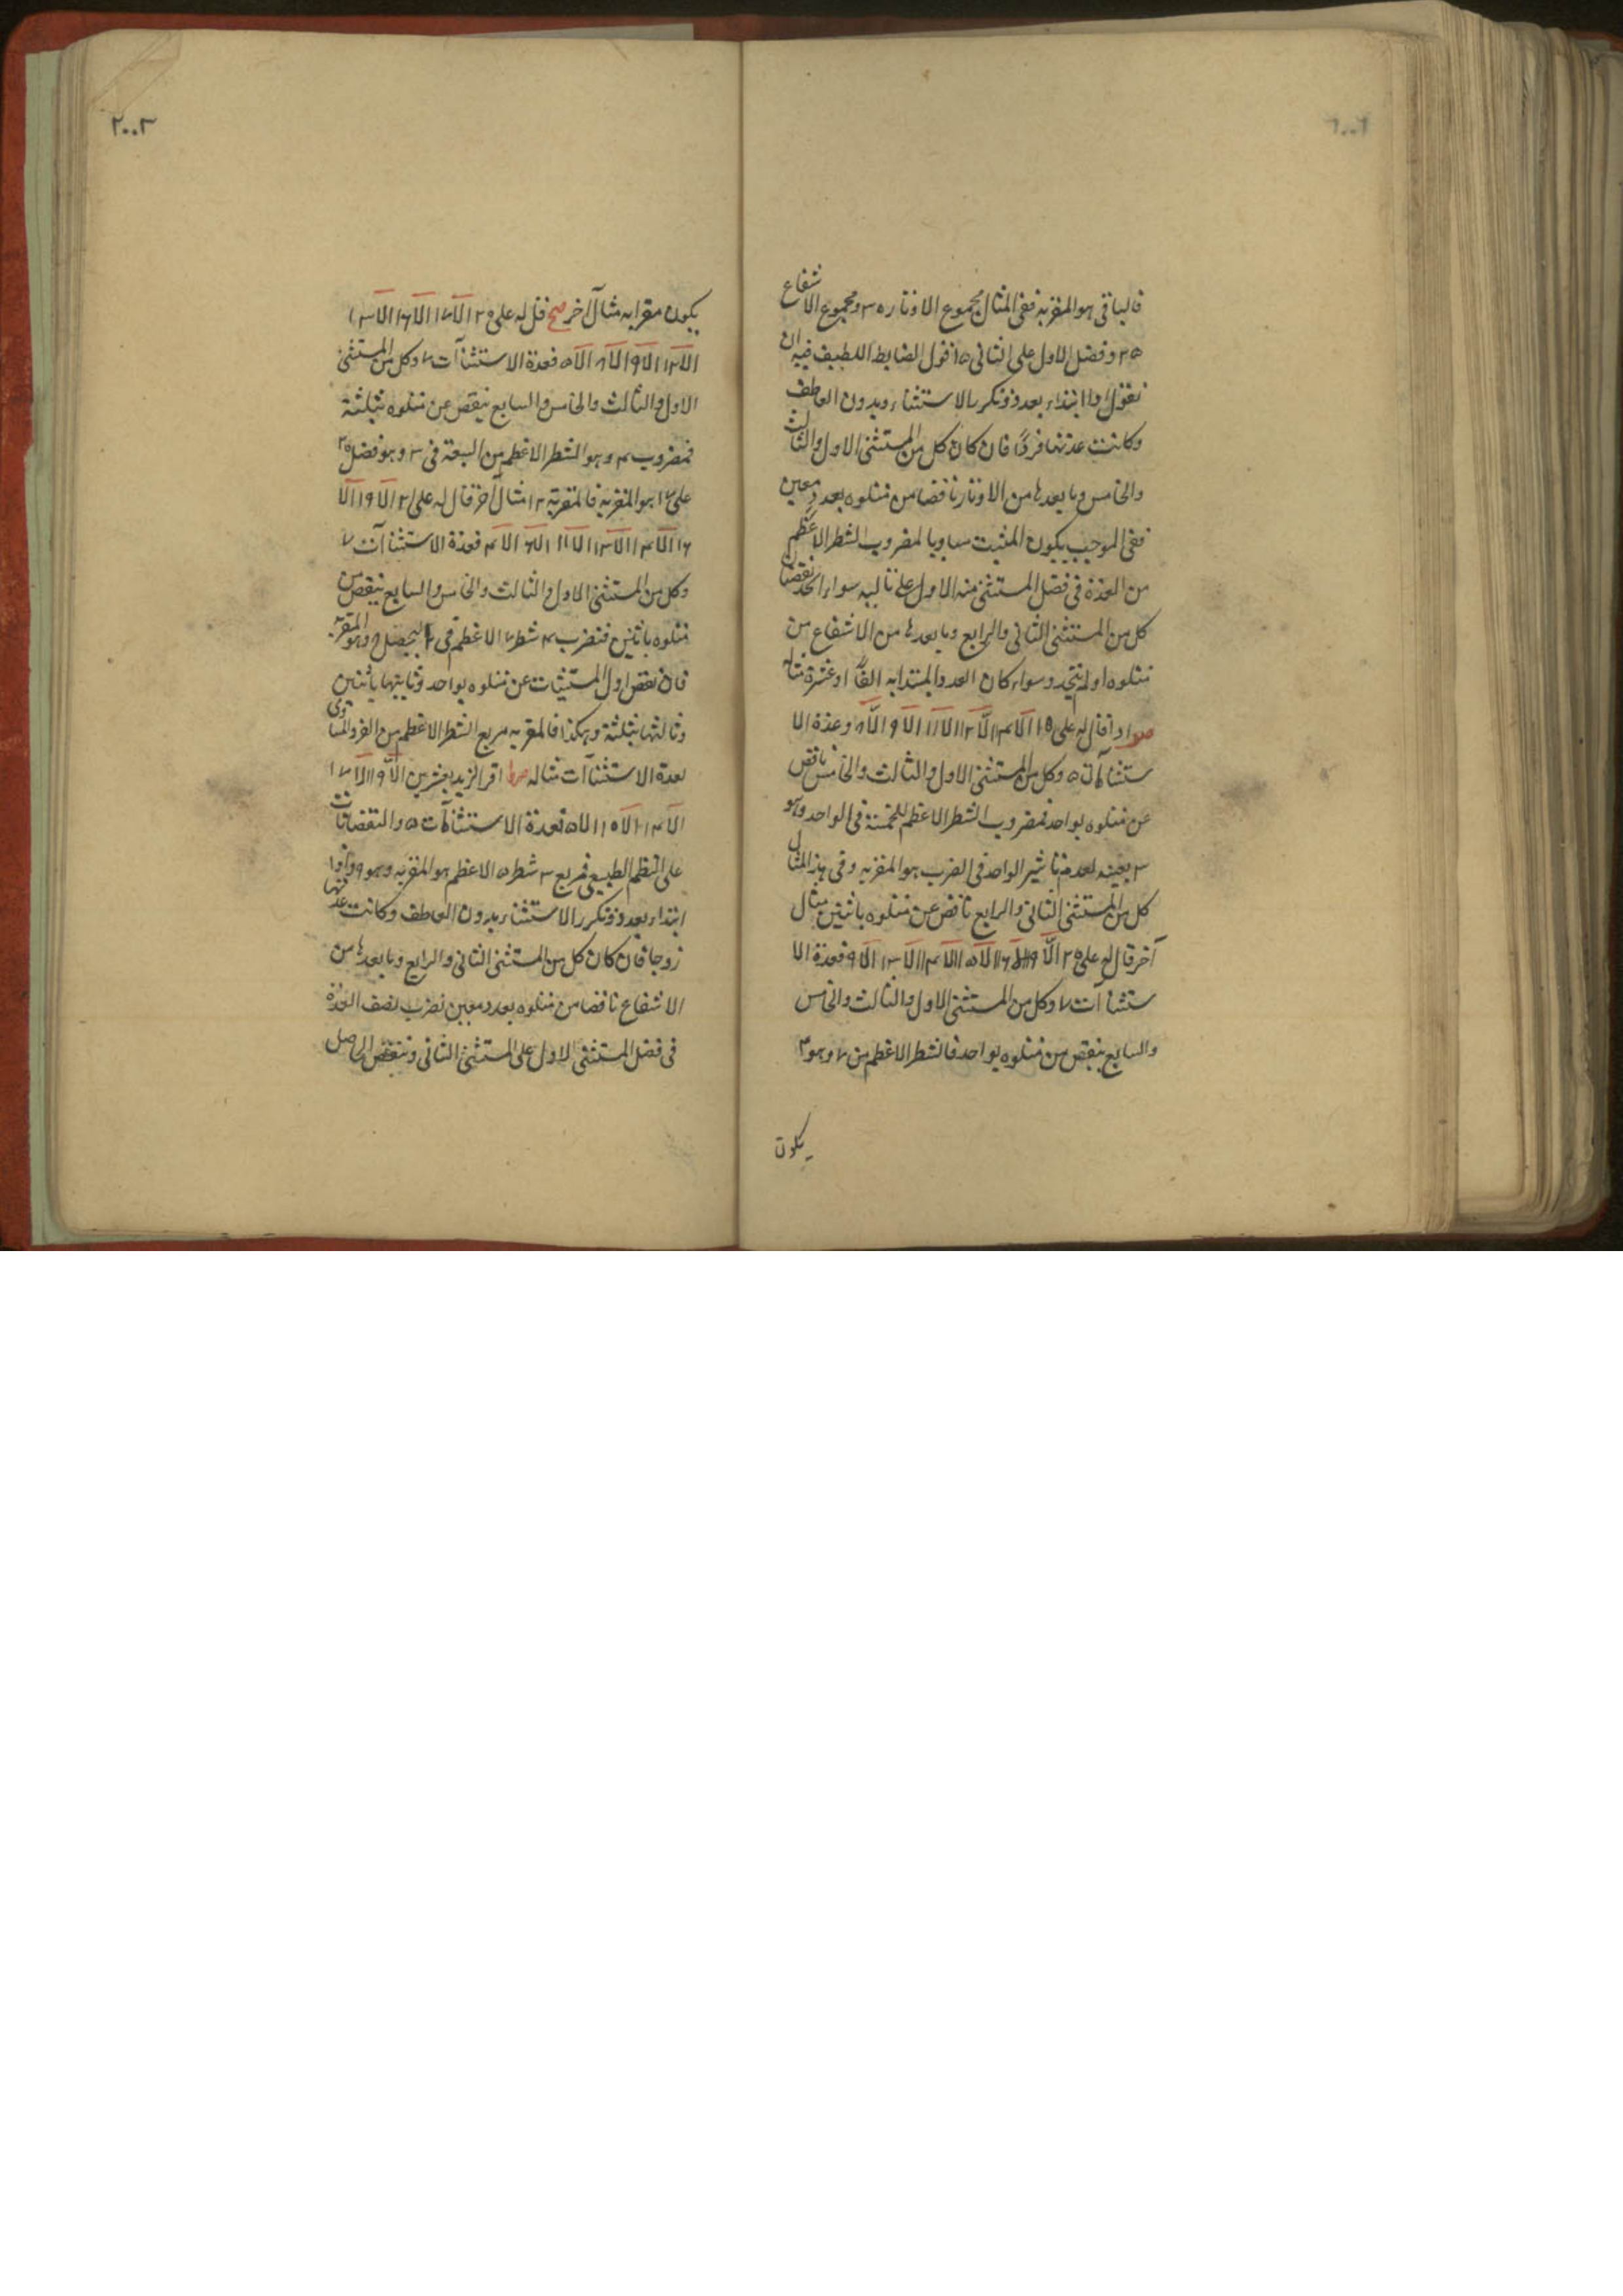 فالباقى هو المقر به ففى المثال مجموع الاوتار ٣٥ ومجموع الاشفاع
٢٥ وفضل الاول على الثانى ١٥ اقول الضابط اللطيف فيه ان
نقول اذا ابتداء بعدد وتكرر الاستثناء وبدون العاطف
وكانت عدتها فردًا فان كان كل من المستثنى الاول والثالث
والخامس وما بعدها من الاوتار ناقصا من متلوه بعدد معين
ففى الموجب يكون المثبت مساويا لمضروب الشطر الاعظم
من العدة فى فضل المستثنى منه الاول على تاليه سواء اتحد نقصان
كل من المستثنى الثانى والرابع وما بعدها من الاشفاع من
متلوه اولم يتحد وسواء كان العدد المبتدا به الفًا او عشرة مثاله
اذا قال له على ١٥ الا ١٤ الا ١٢ الا ١١ الا ٩ الا ٨ وعدة الا
ستثناآت ٥ وكل من المستثنى الاول والثالث والخامس ناقص
عن متلوه بواحد فمضروب الشطر الاعظم للخمسة فى الواحد وهو
٣ بعينه لعدم تاثير الواحد فى الضرب هو المقر به وفى هذا المثال
كل من المستثنى الثانى والرابع ناقص عن متلوه باثنين مثال
آخر قال له على ٢٥ الا ١٩ الا ١٦ الا ١٥ الا ١٤ الا ١٣ الا ٩ فعدة الا
ستثناآت ٧ وكل من المستثنى الاول والثالث والخامس
والسابع ينقص من متلوه بواحد فالشطر الاعظم من ٧ وهو ٤
يكون
٢٠٠٣
يكون مقرا به مثال آخر صح قل له على ٢٥ الا ١٧ الا ١٦ الا ١٣
الا ١٢ الا ٩ الا ٨ الا ٥ فعدة الاستثناآت ٧ وكل من المستثنى
الاول والثالث والخامس والسابع ينقص عن متلوه بثلثة
فمضروب ٤ وهو الشطر الاعظم من السبعة فى ٣ وهو فضل ٢٠
على ١٧ هو المقر به فالمقر به ١٢ مثال آخر قال له على ٢١ الا ١٩ الا
١٦ الا ١٤ الا ١٣ الا ١١ الا ٦ الا ٤ فعدة الاستثناآت ٧
وكل من المستثنى الاول والثالث والخامس والسابع ينقص من
متلوه باثنين فنضرب ٤ شطر ٧ الاعظم فى ٢ يحصل وهو المقر به
فان نقص اول المستثنيات عن متلوه بواحد وثانيتها باثنين
وثالثتها بثلثة وهكذا فالمقر به مربع الشطر الاعظم من الفرد المساوى
لعدة الاستثناآت مثاله اقر لزيد بعشرين الا ١٩ الا ١٧
الا ١٤ الا ١٠ الا ٥ فعدة الاستثناآت ٥ والنقصانات
على النظم الطبيعى فمربع ٣ شطر ٥ الاعظم هو المقر به وهو ٩ واذا
ابتداء بعدد وتكرر الاستثناء بدون العاطف وكانت عدتها
زوجا فان كان كل من المستثنى الثانى والرابع وما بعدها من
الاشفاع ناقصا من متلوه بعدد معين نضرب نصف العدة
فى فضل المستثنى الاول على المستثنى الثانى وننقص الحاصل